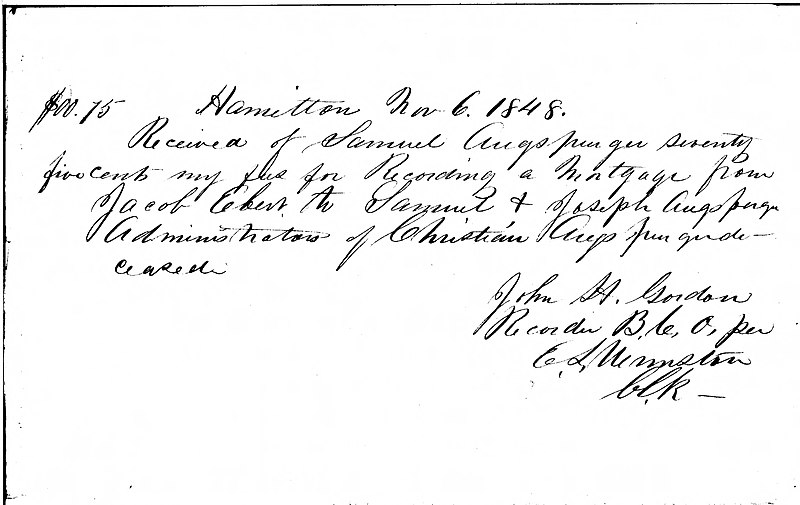 $00.75 Hamilton Nov 6. 1848.
Received of Samuel Augspurger seventy
five cents my fees for Recording a Mortgage from
Jacob Ebert to Samuel & Joseph Augspurger
Administrators of Christian Augspurger de-
ceased
John H. Gordon
Recorder B. C. O. per
E. L.
Clk —